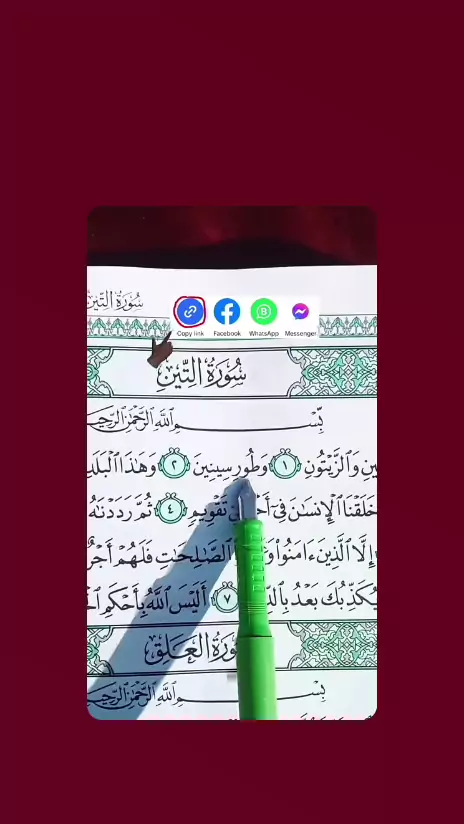 سُورَةُ التِّينِ
Copy link Facebook WhatsApp Messenger
سُورَةُ التِّينِ
بِسْمِ ٱللَّهِ ٱلرَّحْمَٰنِ
وَٱلزَّيْتُونِ ١ وَطُورِ سِينِينَ ٢ وَهَٰذَا ٱلْبَلَدِ
خَلَقْنَا ٱلْإِنسَٰنَ فِىٓ تَقْوِيمٍ ٤ ثُمَّ رَدَدْنَٰهُ
إِلَّا ٱلَّذِينَ ءَامَنُوا۟ ٱلصَّٰلِحَٰتِ فَلَهُمْ أَجْرٌ
يُكَذِّبُكَ بَعْدُ ٧ أَلَيْسَ ٱللَّهُ بِأَحْكَمِ
سُورَةُ العَلَقِ
بِسْمِ ٱللَّهِ ٱلرَّحْمَٰنِ